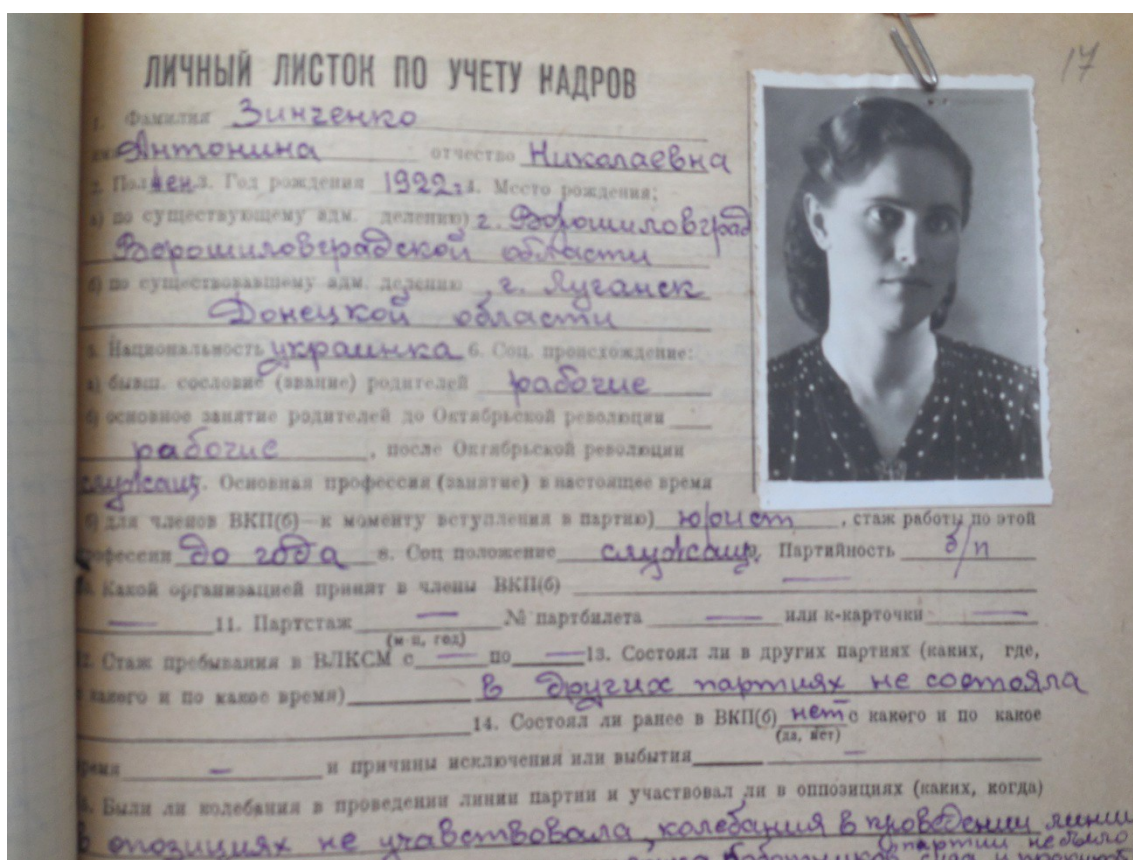 17
ЛИЧНЫЙ ЛИСТОК ПО УЧЕТУ КАДРОВ
1. Фамилия Зинченко
Антонина отчество Николаевна
2. Пол жен. 3. Год рождения 1922г. 4. Место рождения:
а) по существующему адм. делению) г. Ворошиловград
Ворошиловградской области
б) по существовавшему адм. делению , г. Луганск
Донецкой области
5. Национальность украинка 6. Соц. происхождение:
а) бывш. сословие (звание) родителей рабочие
б) основное занятие родителей до Октябрьской революции
рабочие , после Октябрьской революции
служащ. Основная профессия (занятие) в настоящее время
б) для членов ВКП(б)—к моменту вступления в партию) юрист , стаж работы по этой
профессии до года 8. Соц положение служащ. Партийность б/п
10. Какой организацией принят в члены ВКП(б) —
— 11. Партстаж — № партбилета — или к-карточки —
(м-ц, год)
12. Стаж пребывания в ВЛКСМ с — по — 13. Состоял ли в других партиях (каких, где,
с какого и по какое время) в других партиях не состояла
14. Состоял ли ранее в ВКП(б) нет с какого и по какое
(да, нет)
время — и причины исключения или выбытия —
15. Были ли колебания в проведении линии партии и участвовал ли в оппозициях (каких, когда)
в опозициях не учавствовала, колебания в проведении линии
партии не было
работников суда и